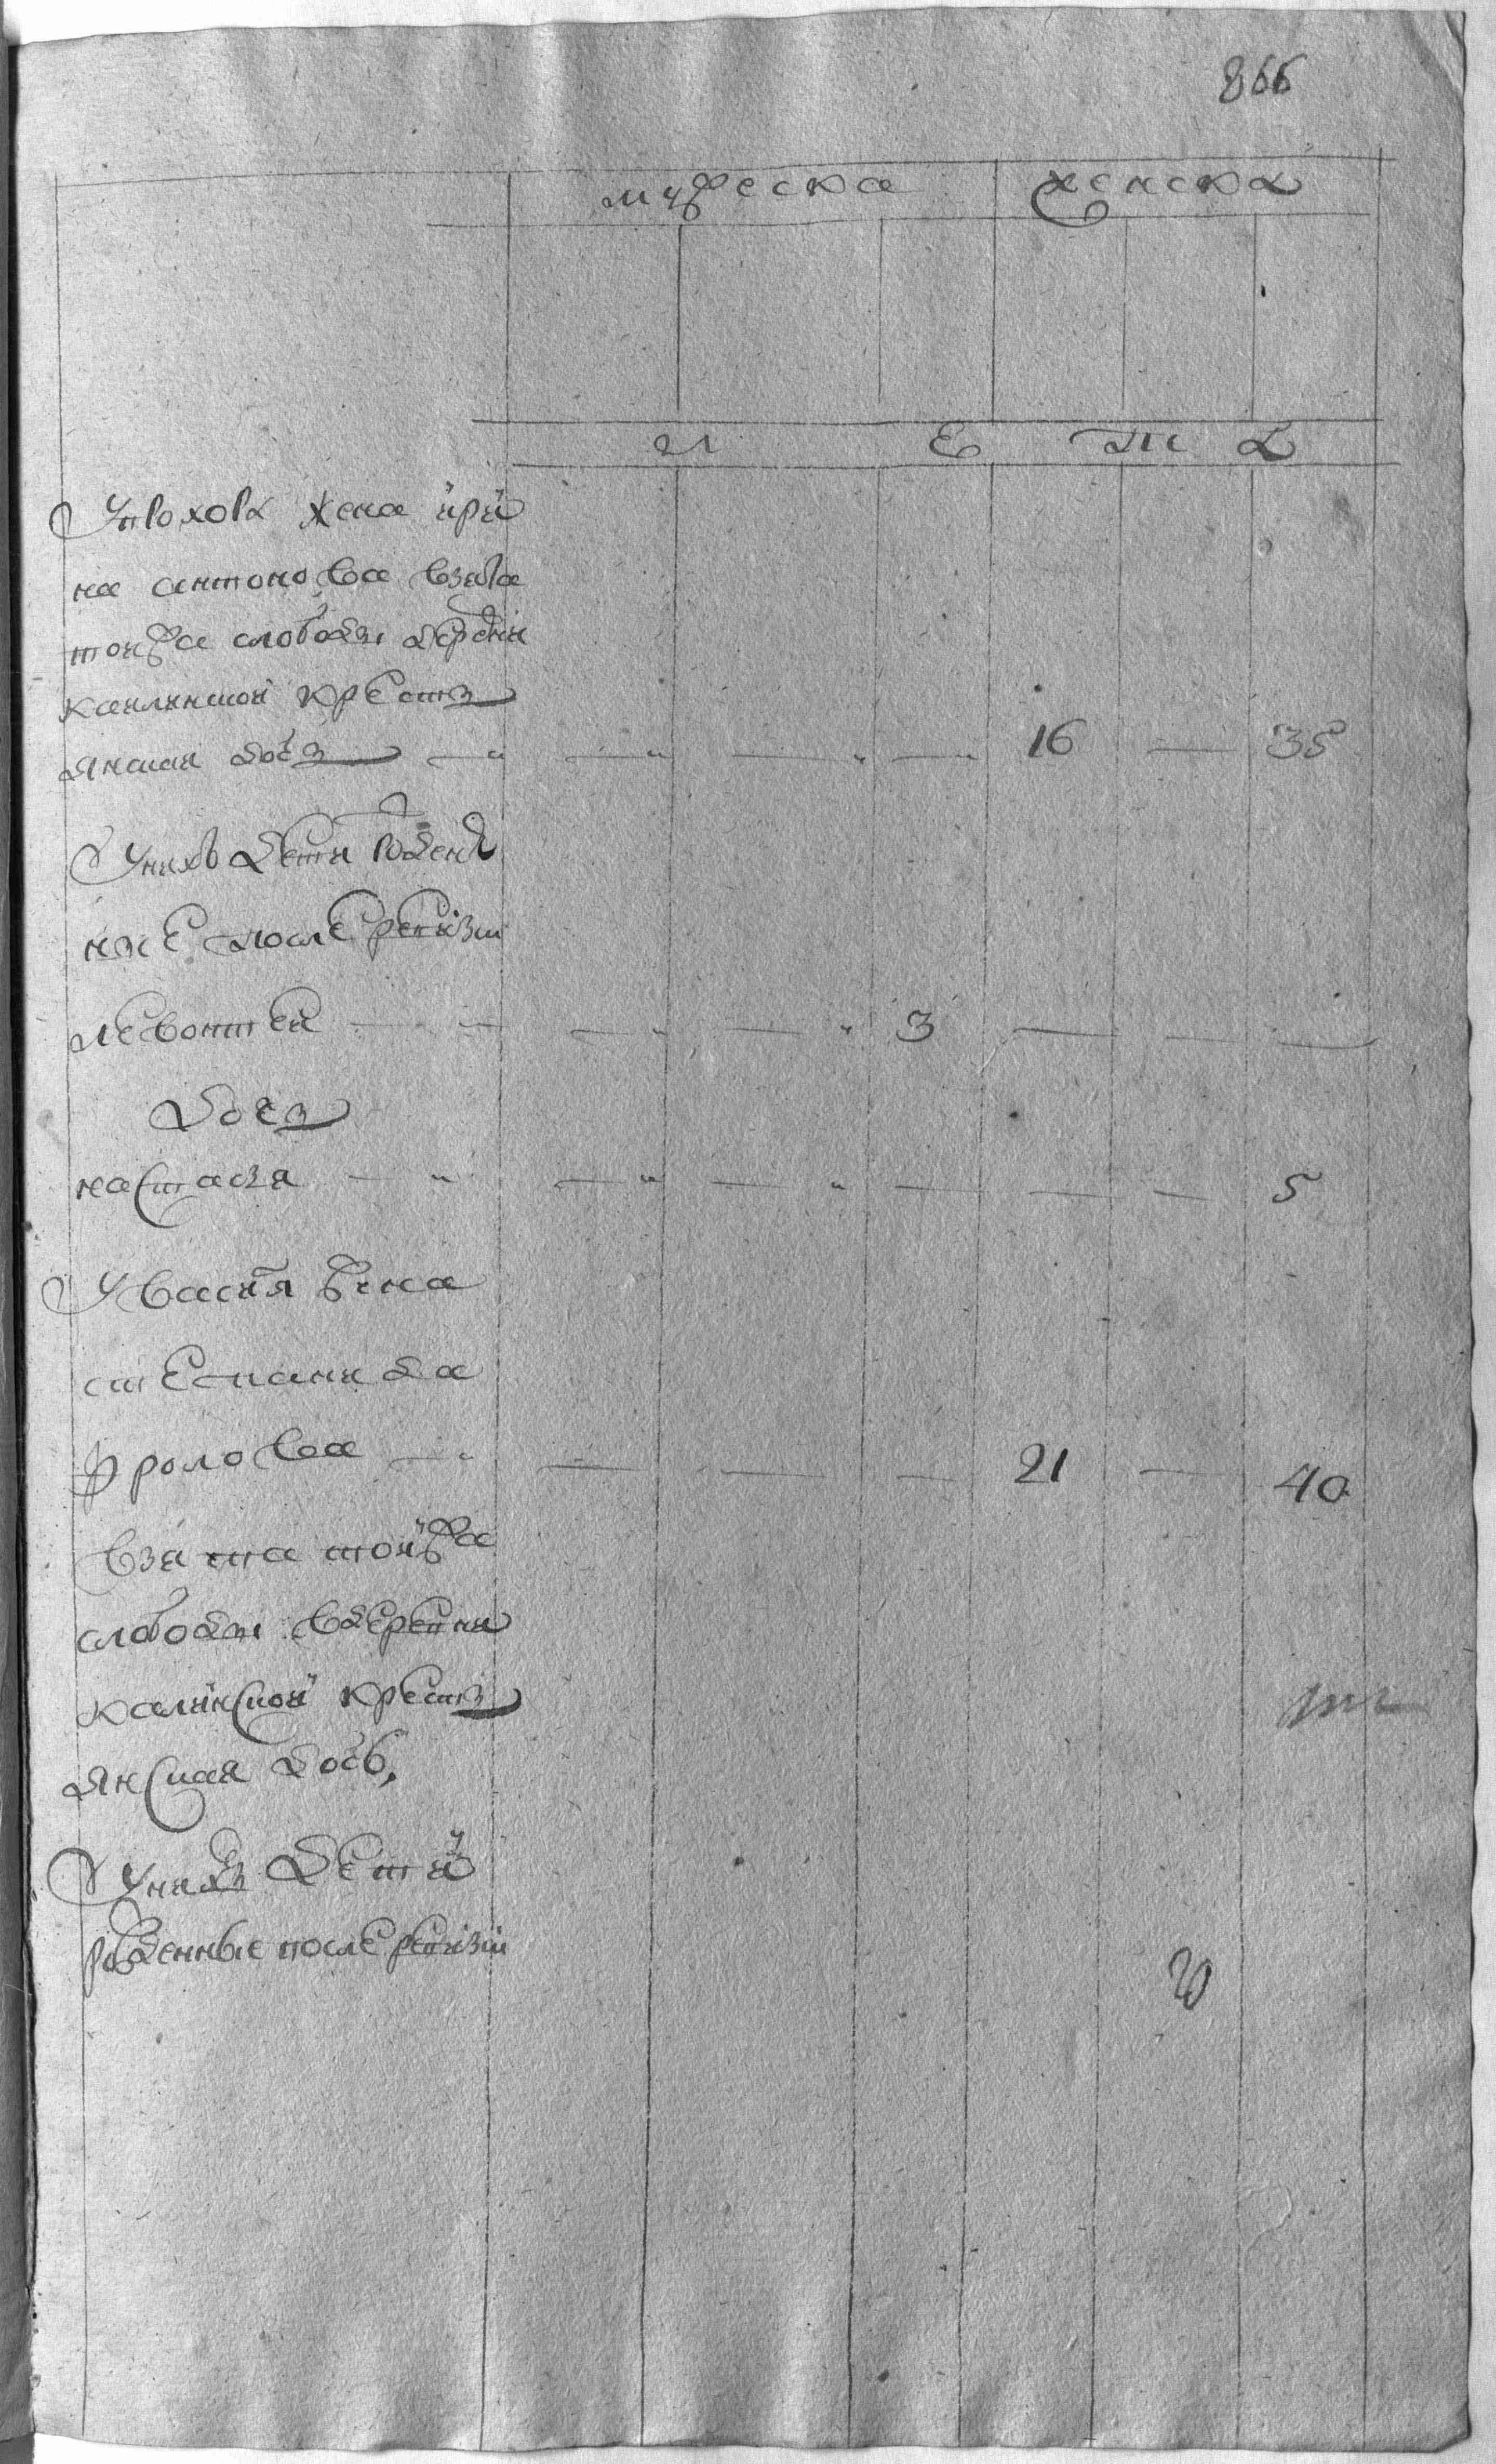 866
мужеска женска
л е т а
Упрохора жена ири
на антонова взята
тоижа слободы деревни
калинской кресть
янская дочь 16 35
Унихъ дети рожен
ные после ревизии
левонтеи 3
дочь
настасья 5
Увасиля жена
степанида
фролова 21 40
взята тоижа
слободы вдеревни
калинской кресть
янская дочь
Унихъ дети
рожденные после ревизии